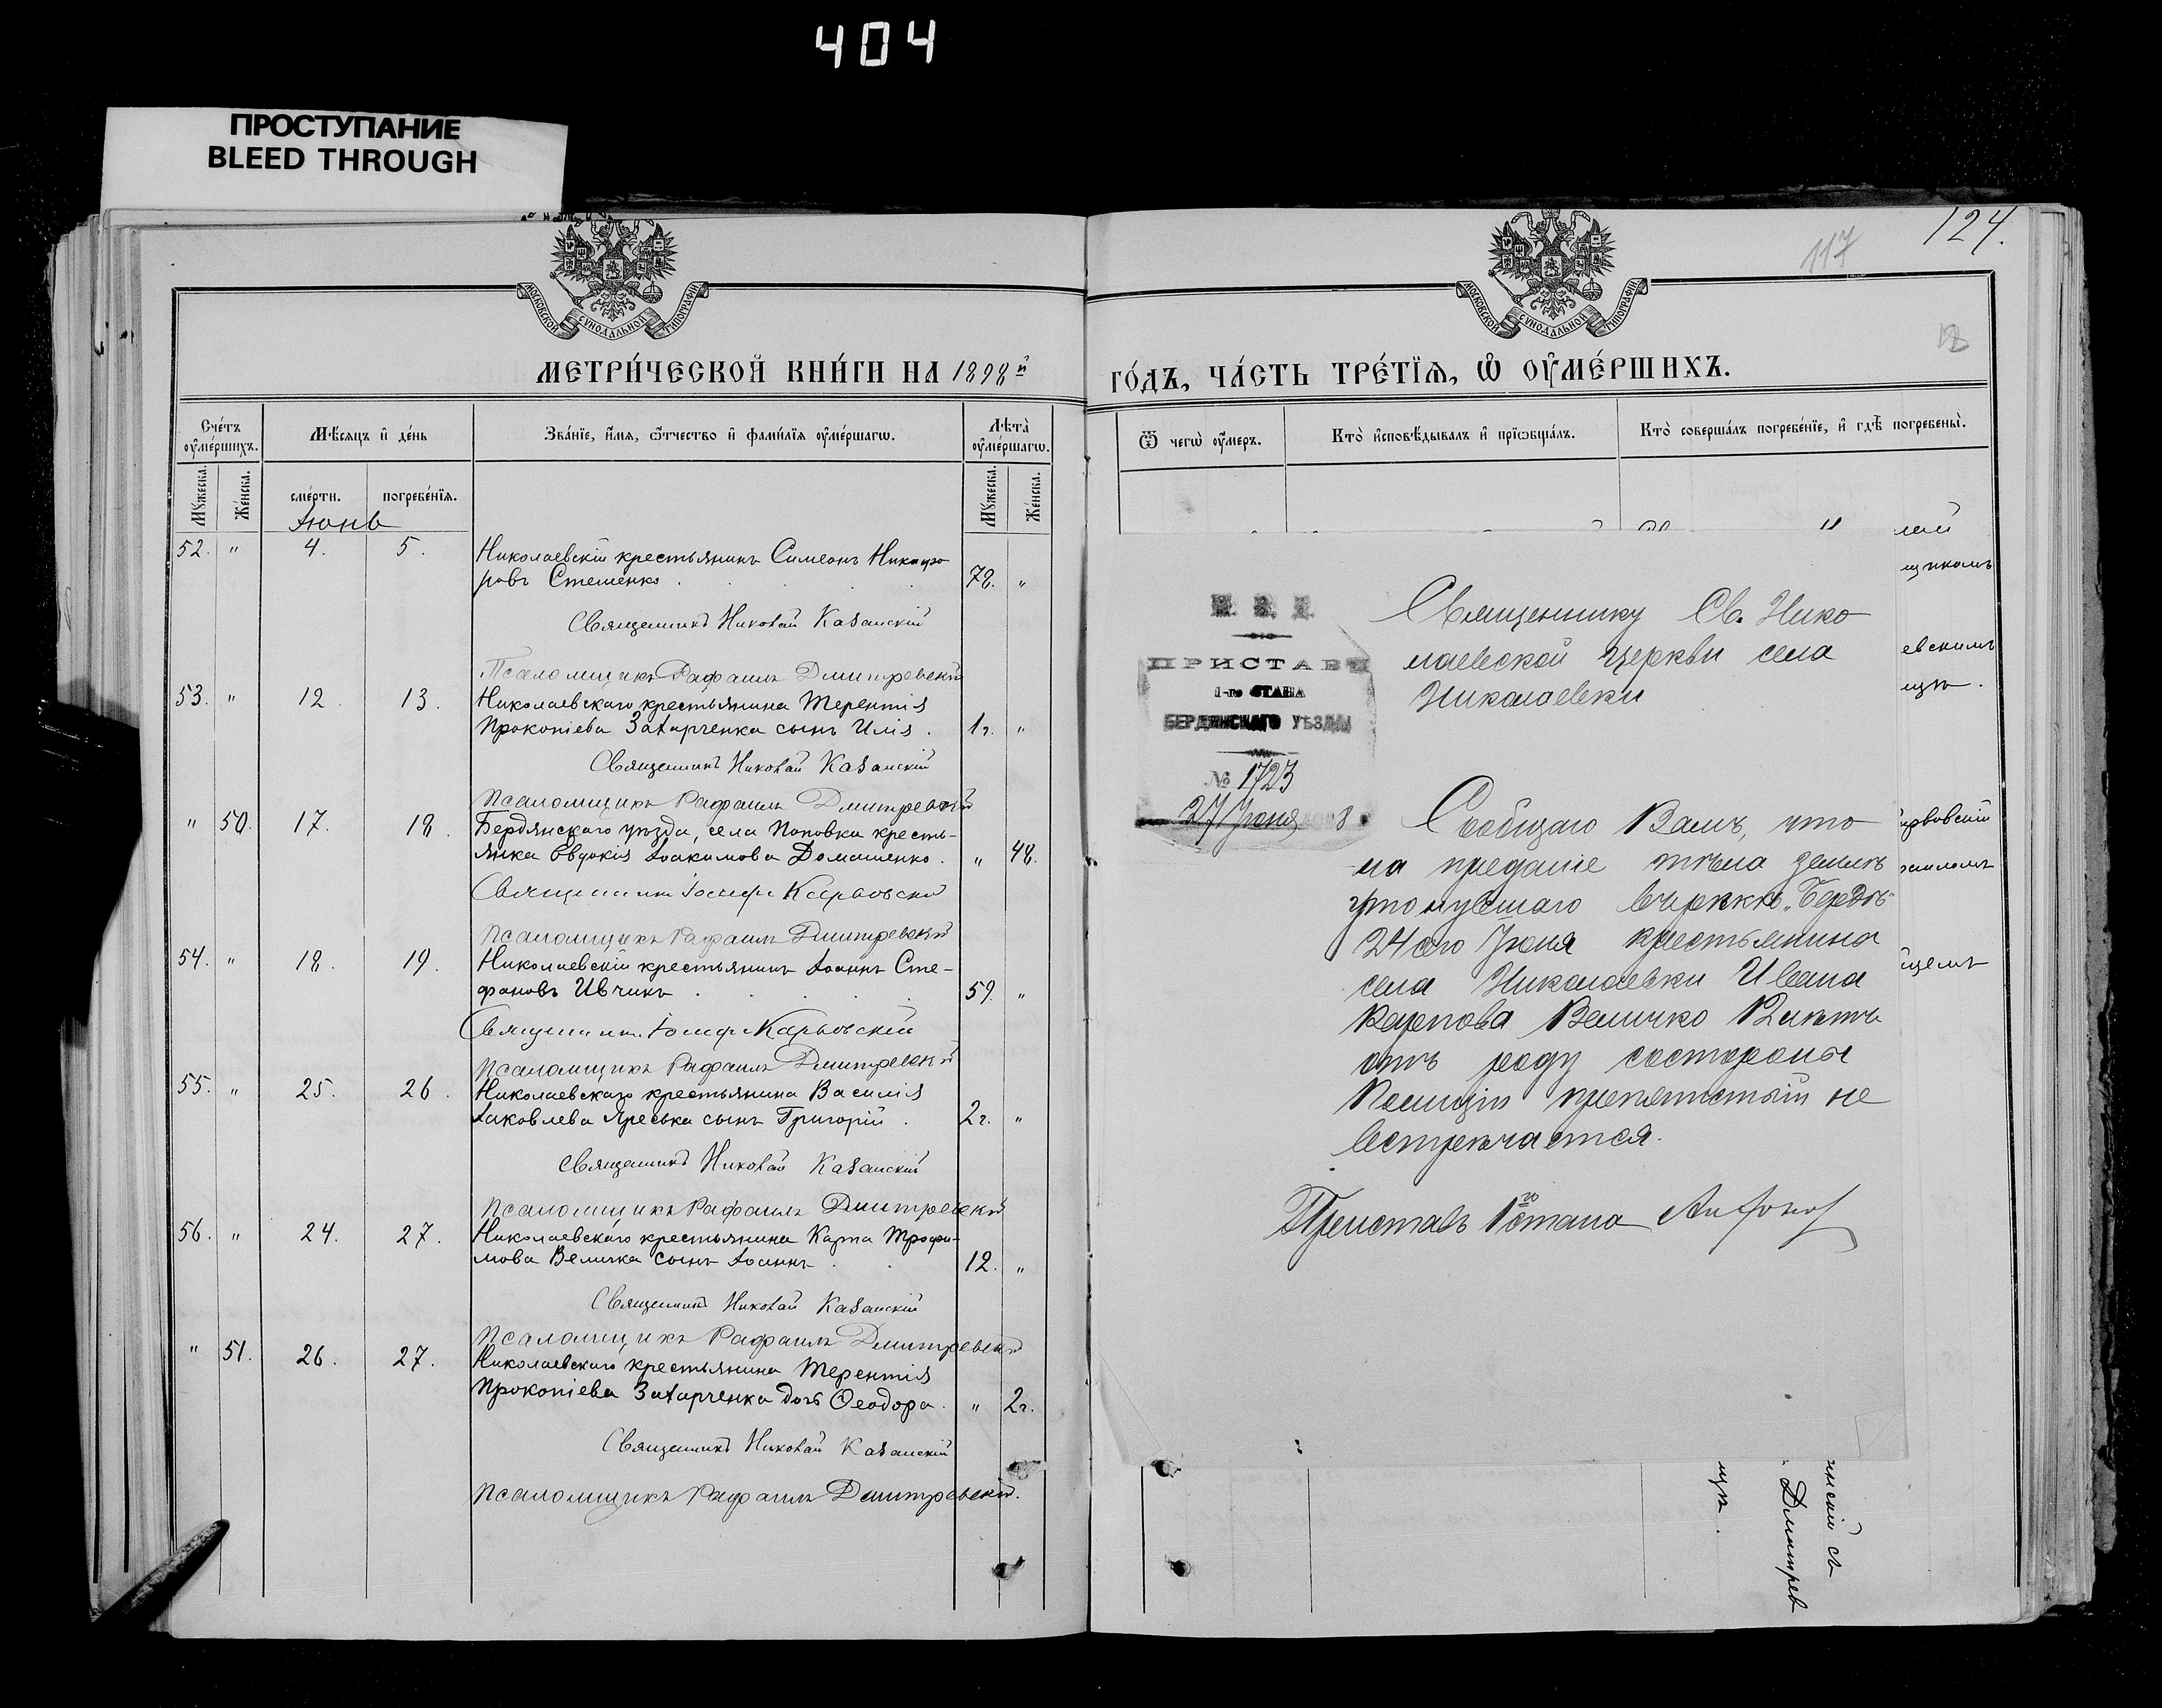 404
ПРОСТУПАНИЕ
BLEED THROUGH
МОСКОВСКОЙ СѴНОДАЛЬНОЙ ТИПОГРАФІИ
МЕТРИ́ЧЕСКОЙ КНИ́ГИ НА 1898й
Сче́тъ ᲂу҆ме́ршихъ.
Мꙋ́жеска.
Же́нска.
Мѣ́сяцъ и҆ де́нь
сме́рти.
погребе́нїѧ.
Зва́нїе, и҆́мѧ, ѻ҆́тчество и҆ фами́лїѧ ᲂу҆ме́ршагѡ.
Лѣ́та ᲂу҆ме́ршагѡ.
Мꙋ́жеска.
Же́нска.
Іюнь
52. " 4. 5. Николаевскій крестьянинъ Симеонъ Никифо
ровъ Стешенко . 78. "
Священникъ Николай Казанскій
Псаломщикъ Рафаилъ Дмитревскій
53. " 12. 13. Николаевскаго крестьянина Терентія
Прокопіева Захарченка сынъ Илія . 1г. "
Священникъ Николай Казанскій
Псаломщикъ Рафаилъ Дмитревскій
" 50. 17. 18. Бердянскаго уѣзда, села Поповки кресть-
янка Евдокія Іоакимова Домашенко . " 48.
Священникъ Іосифъ Карвовскій
Псаломщикъ Рафаилъ Дмитревскій
54. " 18. 19. Николаевскій крестьянинъ Іоаннъ Сте-
фановъ Ивчикъ . 59. "
Священник. Іосифъ Карвовскій
Псаломщикъ Рафаилъ Дмитревскій
55. " 25. 26. Николаевскаго крестьянина Василія
Іаковлева Яреська сынъ Григорій . 2г. "
Священникъ Николай Казанскій
Псаломщикъ Рафаилъ Дмитревскій
56. " 24. 27. Николаевскаго крестьянина Карпа Трофи-
мова Величка сынъ Іоаннъ . 12. "
Священникъ Николай Казанскій
Псаломщикъ Рафаилъ Дмитревскій
" 51. 26. 27. Николаевскаго крестьянина Терентія
Прокопіева Захарченка дочь Ѳеодора . " 2г.
Священникъ Николай Казанскій
Псаломщикъ Рафаилъ Дмитревскій.
117
124.
МОСКОВСКОЙ СѴНОДАЛЬНОЙ ТИПОГРАФІИ
ГО́ДЪ, ЧА́СТЬ ТРЕ́ТЇѦ, Ѡ҆ ОУ҆МЕ́РШИХЪ.
Ѿ чегѡ̀ ᲂу҆́меръ.
Кто̀ и҆сповѣ́дывалъ и҆ прїѡбща́лъ.
Кто̀ соверша́лъ погребе́нїе, и҆ гдѣ̀ погребены̀.
М. В. Д.
ПРИСТАВЪ
1-го СТАНА
БЕРДЯНСКАГО УѢЗДА
№ 1723
27 Іюня 8
Священнику Св. Нико
лаевской Церкви села
Николаевки
Сообщаю Вамъ, что
на преданіе тѣла землѣ
утонувшаго врѣккѣ „Берды"
24сего Іюня крестьянина
села Николаевки Ивана
Карпова Величко 12 лѣтъ
отъ роду состороны
Полиціи препятствій не
встрѣчается.
Приставъ 1го стана
лай
щикомъ
евскимъ
щѣ.
арвовскій
щемъ
нскій съ
Дмитрев
щѣ.